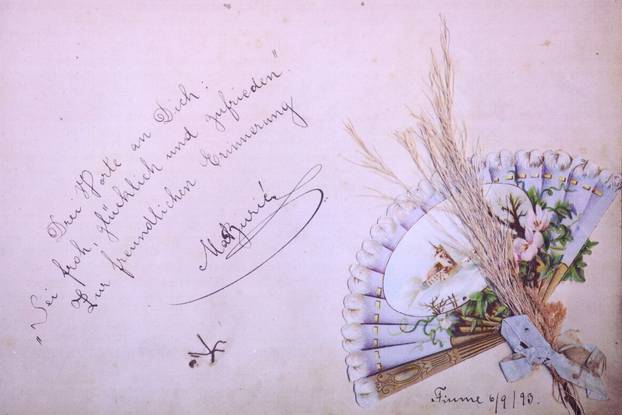 Drei Worte an Dich:
„Sei froh, glücklich und zufrieden"
Zur freundlichen Erinnerung
Fiume 6/9/93.